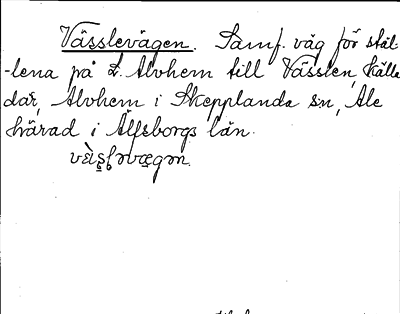 Vässlevägen. Samf. väg för stäl-
-lena på L. Alvhem till Vässlen, Källe
dar, Alvhem i Skepplanda sn, Ale
härad i Älfsborgs län.